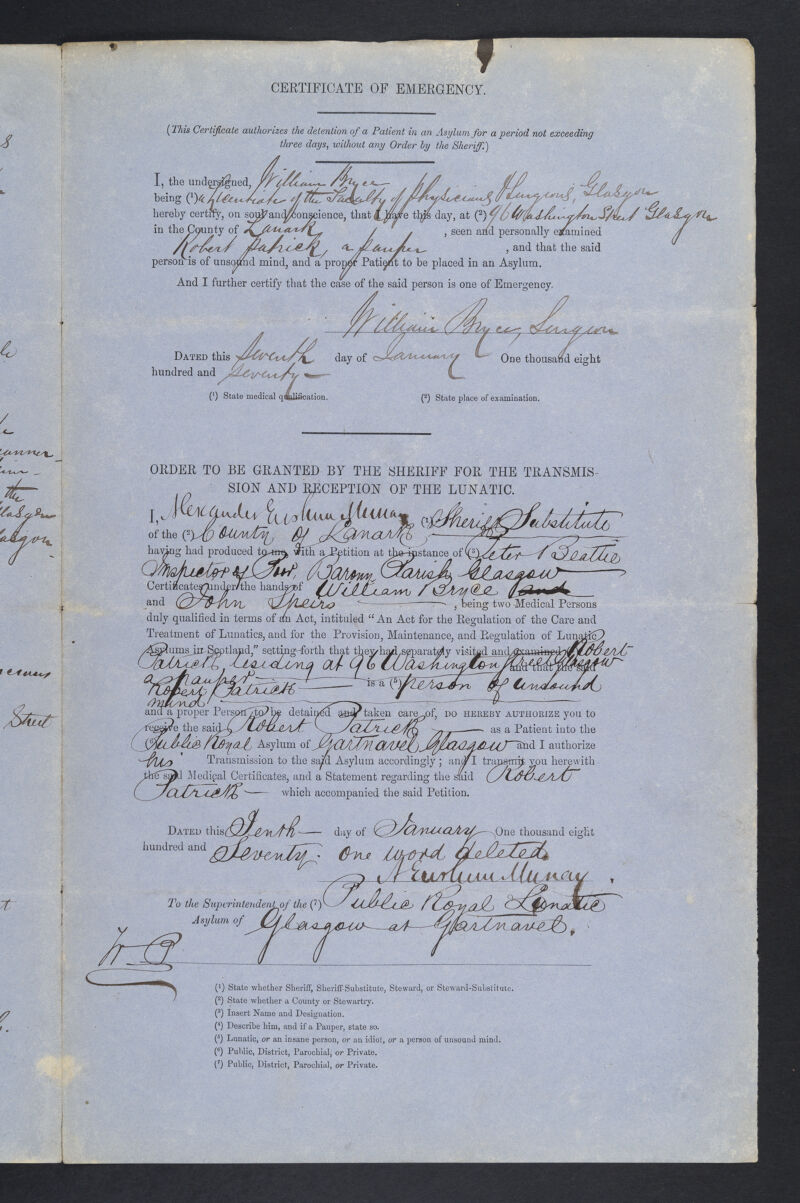 CERTIFICATE OF EMERGENCY.
(This Certificate authorizes the detention of a Patient in an Asylum for a period not exceeding
three days, without any Order by the Sheriff.)
I, the undersigned, William Bryce
being (¹) a Licentiate of the Faculty of Physicians & Surgeons, Glasgow
hereby certify, on soul and conscience, that I have this day, at (²) 96 Washington Street Glasgow
in the County of Lanark , seen and personally examined
Robert Patrick, a pauper , and that the said
person is of unsound mind, and a proper Patient to be placed in an Asylum.
And I further certify that the case of the said person is one of Emergency.
William Bryce, Surgeon
DATED this Seventh day of January One thousand eight
hundred and seventy
(¹) State medical qualification. (²) State place of examination.
ORDER TO BE GRANTED BY THE SHERIFF FOR THE TRANSMIS-
SION AND RECEPTION OF THE LUNATIC.
I, Alexander Erskine Murray (¹) Sheriff Substitute
of the (²) County of Lanark
having had produced to me, with a Petition at the instance of (³) Peter Beattie
Inspector of Poor, Barony Parish, Glasgow
Certificates under the hands of William Bryce and
and John Speirs , being two Medical Persons
duly qualified in terms of an Act, intituled "An Act for the Regulation of the Care and
Treatment of Lunatics, and for the Provision, Maintenance, and Regulation of Lunatic
Asylums in Scotland," setting forth that they had separately visited and examined Robert
Patrick, residing at 96 Washington Street Glasgow
a pauper and that the said
Robert Patrick is a (⁵) person of unsound
mind
and a proper Person to be detained and taken care of, DO HEREBY AUTHORIZE you to
receive the said Robert Patrick as a Patient into the
Public Royal Asylum of Gartnavel Glasgow and I authorize
his Transmission to the said Asylum accordingly; and I transmit you herewith
the said Medical Certificates, and a Statement regarding the said Robert
Patrick which accompanied the said Petition.
DATED this Tenth day of January One thousand eight
hundred and Seventy. One word deleted.
A Erskine Murray.
To the Superintendent of the (⁷) Public Royal Lunatic
Asylum of Glasgow at Gartnavel.
(¹) State whether Sheriff, Sheriff-Substitute, Steward, or Steward-Substitute.
(²) State whether a County or Stewartry.
(³) Insert Name and Designation.
(⁴) Describe him, and if a Pauper, state so.
(⁵) Lunatic, or an insane person, or an idiot, or a person of unsound mind.
(⁶) Public, District, Parochial, or Private.
(⁷) Public, District, Parochial, or Private.
the
Glasgow
Street